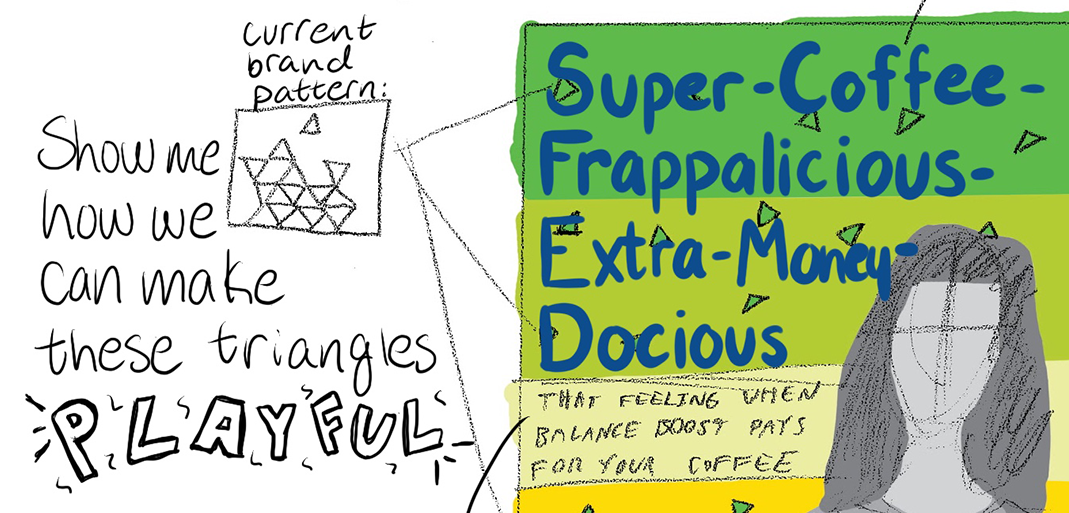 current
brand
pattern:
Show me
how we
can make
these triangles
PLAYFUL
Super-Coffee-
Frappalicious-
Extra-Money-
Docious
THAT FEELING WHEN
BALANCE BOOST PAYS
FOR YOUR COFFEE